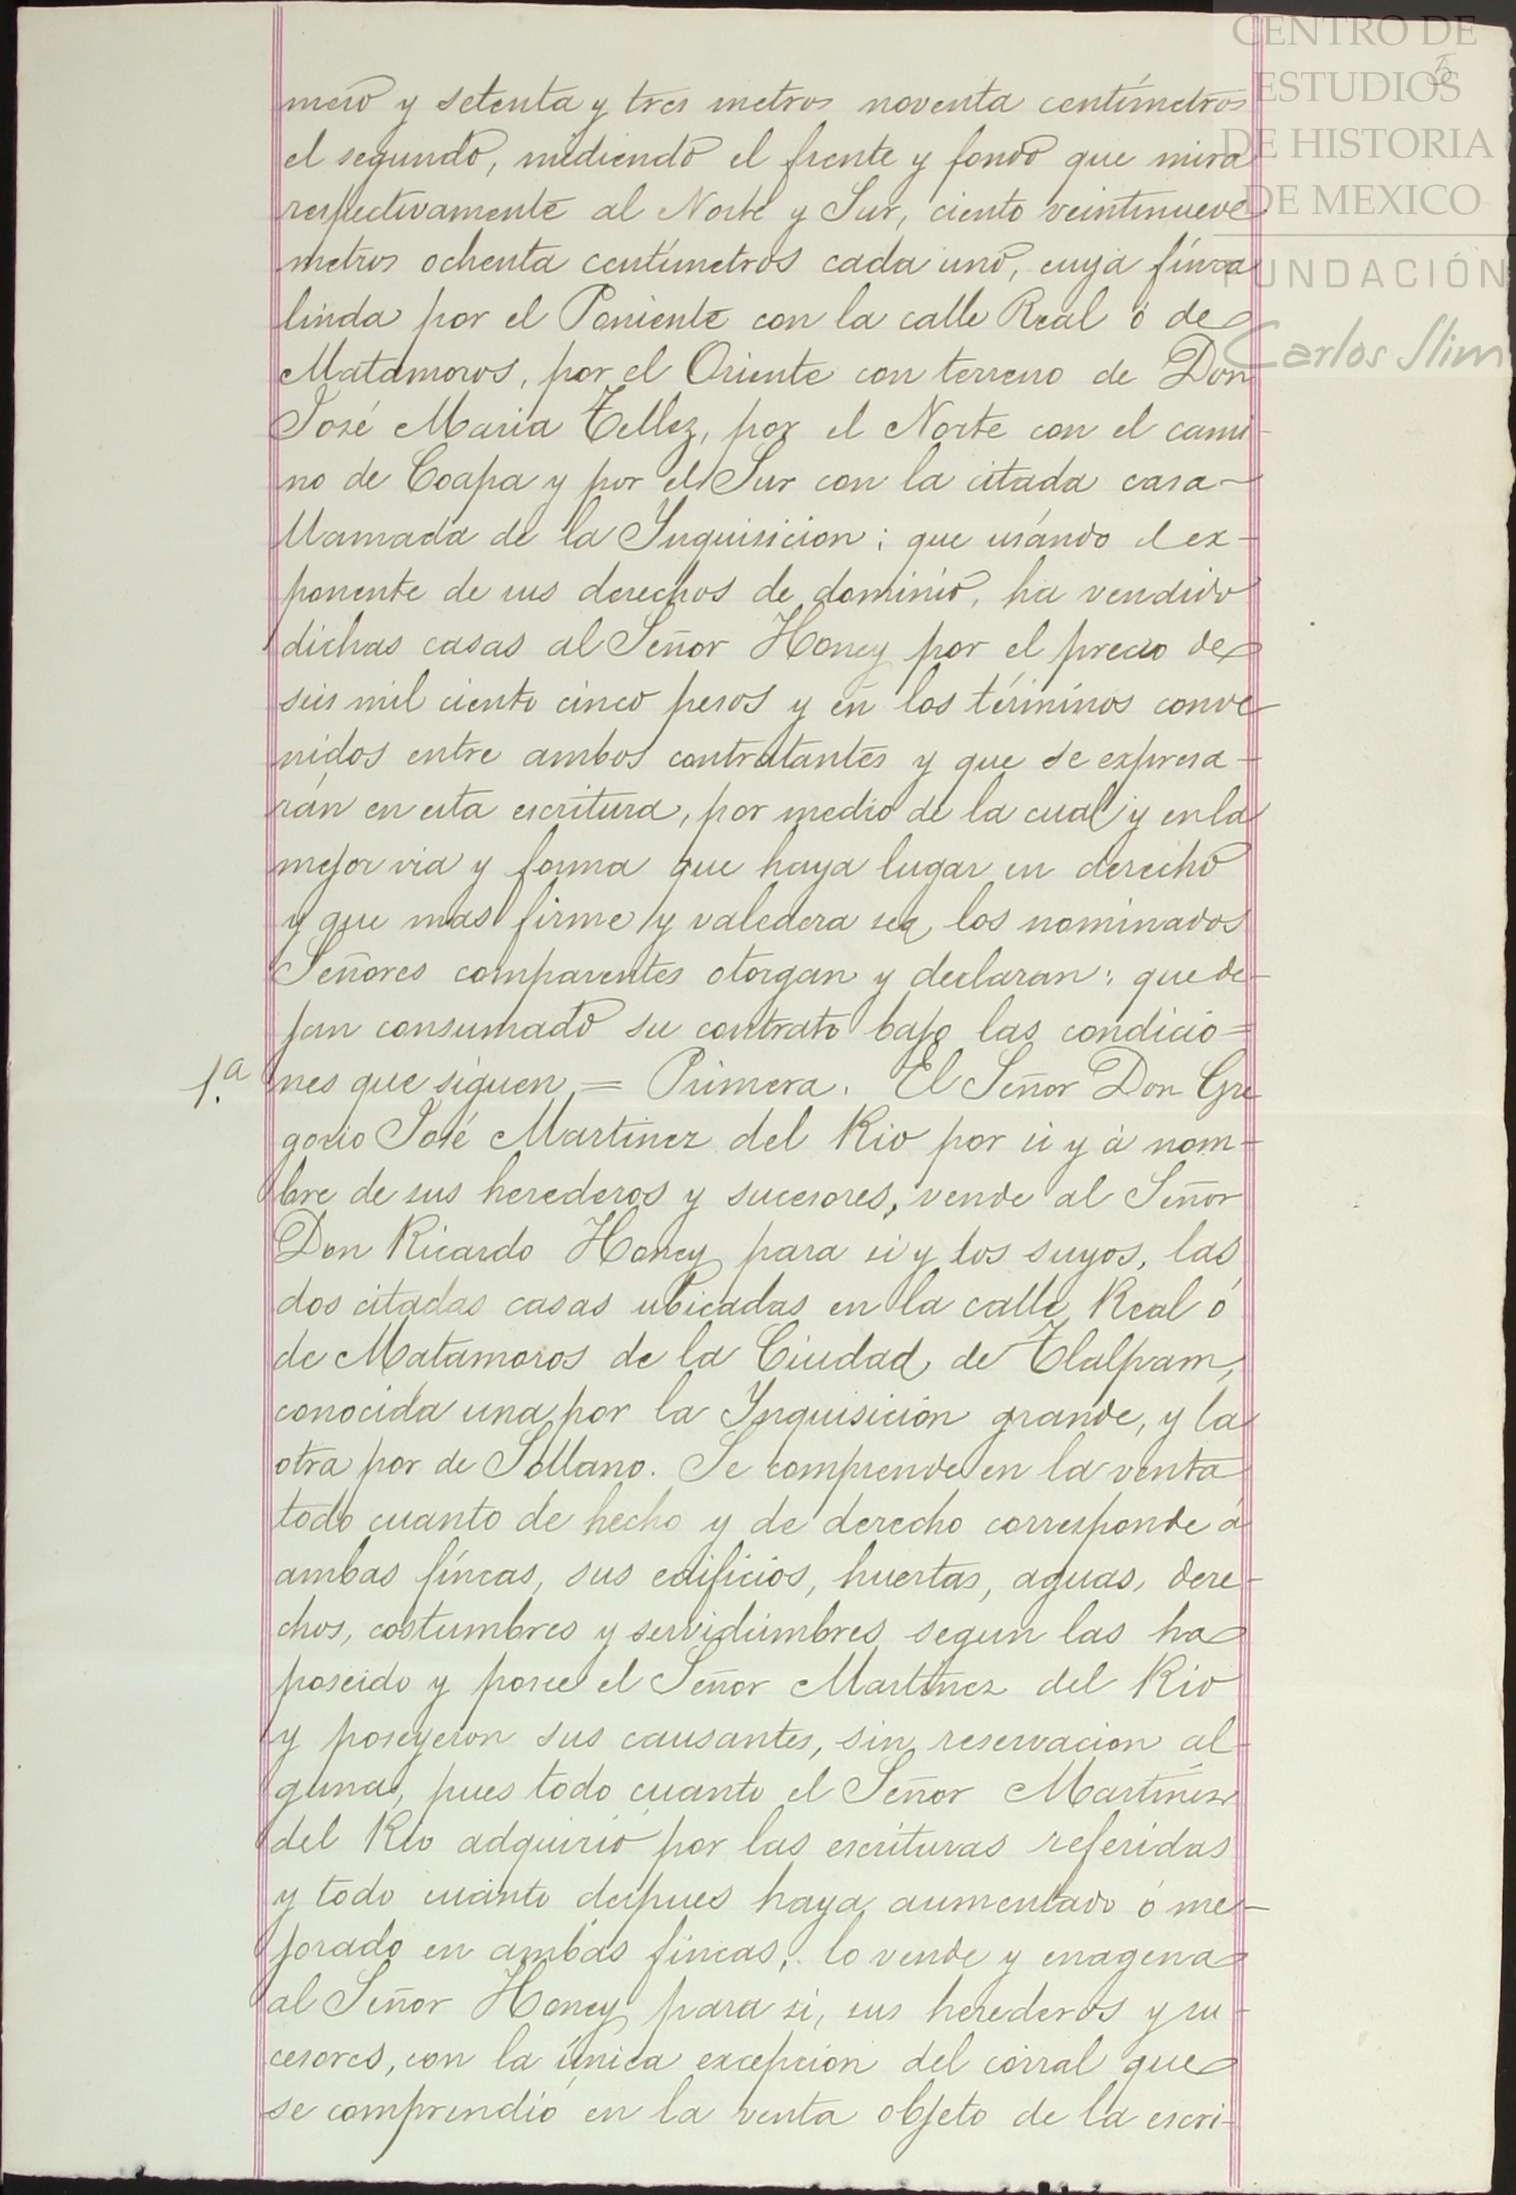 CENTRO DE
ESTUDIOS
DE HISTORIA
DE MEXICO
FUNDACIÓN
Carlos Slim
5
mero y setenta y tres metros noventa centímetros
el segundo, midiendo el frente y fondo que mira
respectivamente al Norte y Sur, ciento veintinueve
metros ochenta centímetros cada uno, cuya finca
linda por el Poniente con la calle Real ó de
Matamoros, por el Oriente con terreno de Don
José Maria Tellez, por el Norte con el cami-
no de Coapa y por el Sur con la citada casa
llamada de la Inquisicion; que usándo el ex-
ponente de sus derechos de dominio, ha vendido
dichas casas al Señor Honey por el precio de
seis mil ciento cinco pesos y en los términos conve
nidos entre ambos contratantes y que se expresa-
rán en esta escritura, por medio de la cual y en la
mejor via y forma que haya lugar en derecho
y que mas firme y valedera sea, los nominados
Señores comparentes otorgan y declaran: que de-
jan consumado su contrato bajo las condicio=
1.a nes que siguen = Primera. El Señor Don Gre
gorio José Martinez del Rio por si y á nom-
bre de sus herederos y sucesores, vende al Señor
Don Ricardo Honey para si y los suyos, las
dos citadas casas ubicadas en la calle Real ó
de Matamoros de la Ciudad de Tlalpam,
conocida una por la Inquisición grande, y la
otra por de Sollano. Se comprende en la venta
todo cuanto de hecho y de derecho corresponde á
ambas fincas, sus edificios, huertas, aguas, dere-
chos, costumbres y servidumbres segun las ha
poseido y posee el Señor Martinez del Rio
y poseyeron sus causantes, sin reservacion al-
guna, pues todo cuanto el Señor Martinez
del Rio adquirió por las escrituras referidas
y todo cuanto despues haya aumentado ó me-
jorado en ambas fincas, lo vende y enagena
al Señor Honey para si, sus herederos y su-
cesores, con la única excepcion del corral que
se comprendió en la venta objeto de la escri-